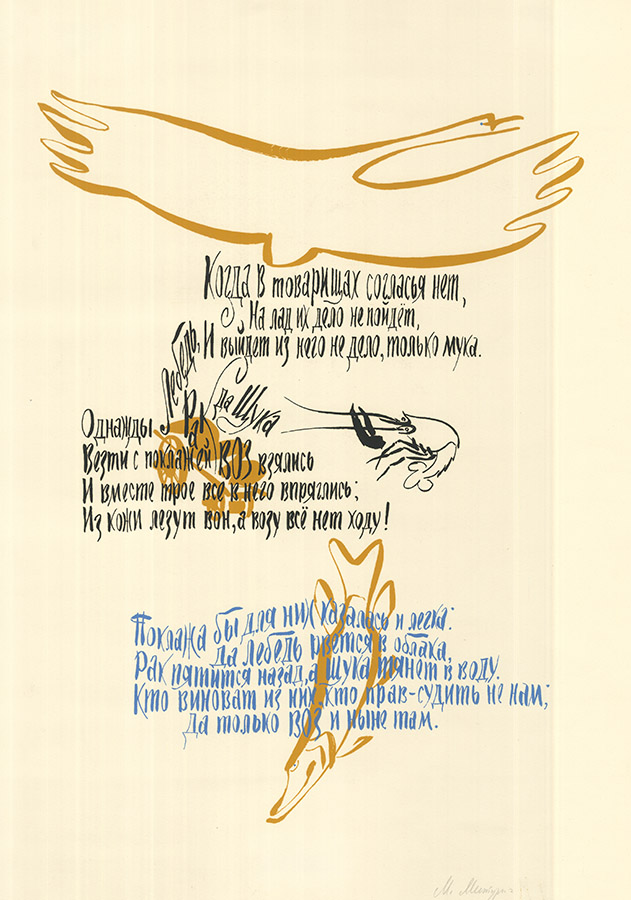 Когда в товарищах согласья нет,
На лад их дело не пойдёт,
И выйдет из него не дело, только мука.
Однажды Лебедь, Рак да Щука
Везти с поклажей ВОЗ взялись
И вместе трое все в него впряглись;
Из кожи лезут вон, а возу всё нет ходу!
Поклажа бы для них казалась и легка:
Да Лебедь рвется в облака,
Рак пятится назад, а Щука тянет в воду.
Кто виноват из них, кто прав-судить не нам;
Да только ВОЗ и ныне там.